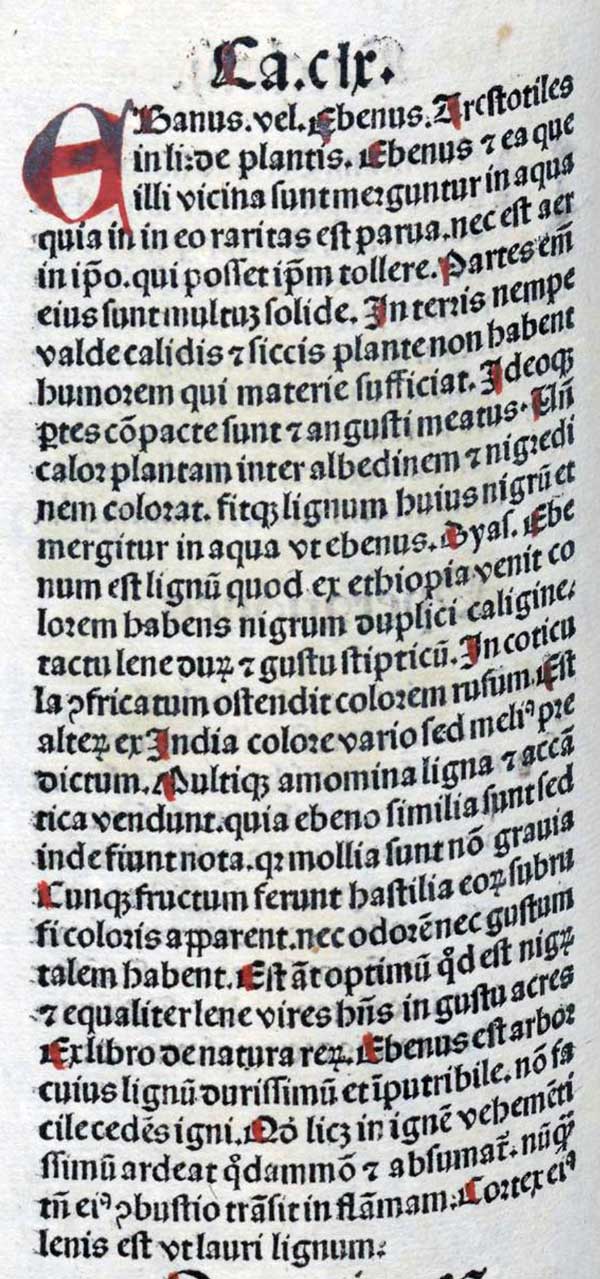 Ca.clx.
EBanus.vel.Ebenus.Arestotiles
in li:de plantis. Ebenus ⁊ ea que
illi vicina sunt merguntur in aqua
quia in in eo raritas est parua.nec est aer
in ip̄o.qui posset ip̄m tollere.Partes em̄
eius sunt multuꝫ solide. In terris nempe
valde calidis ⁊ siccis plante non habent
humorem qui materie sufficiat. Ideoqꝫ
ꝑtes cōpacte sunt ⁊ angusti meatus. Un̄
calor plantam inter albedinem ⁊ nigredi
nem colorat. fitqꝫ lignum huius nigrū et
mergitur in aqua vt ebenus. Dyas. Ebe
num est lignū quod ex ethiopia venit co
lorem habens nigrum duplici caligine:
tactu lene duꝝ ⁊ gustu stipticū. In coticu
la ꝯfricatum ostendit colorem rufum. Est
alteꝝ ex India colore vario sed meliꝰ pre
dictum. Multiqꝫ amomina ligna ⁊ accā
tica vendunt.quia ebeno similia sunt sed
inde fiunt nota.qꝛ mollia sunt nō grauia
Cunqꝫ fructum ferunt hastilia eoꝝ subru
fi coloris apparent.nec odorē nec gustum
talem habent. Est āt optimū qd̓ est nigꝝ
⁊ equaliter lene vires hn̄s in gustu acres
Ex libro de natura reꝝ. Ebenus est arbor
cuius lignū durissimū et īputribile. nō fa
cile cedēs igni. Nō licꝫ in ignē vehemēti
ssimū ardeat qd̓dammō ⁊ absumat̄. nūqᷓ
tn̄ eiꝰ ꝯbustio trāsit in flāmam. Cortex eiꝰ
lenis est vt lauri lignum: